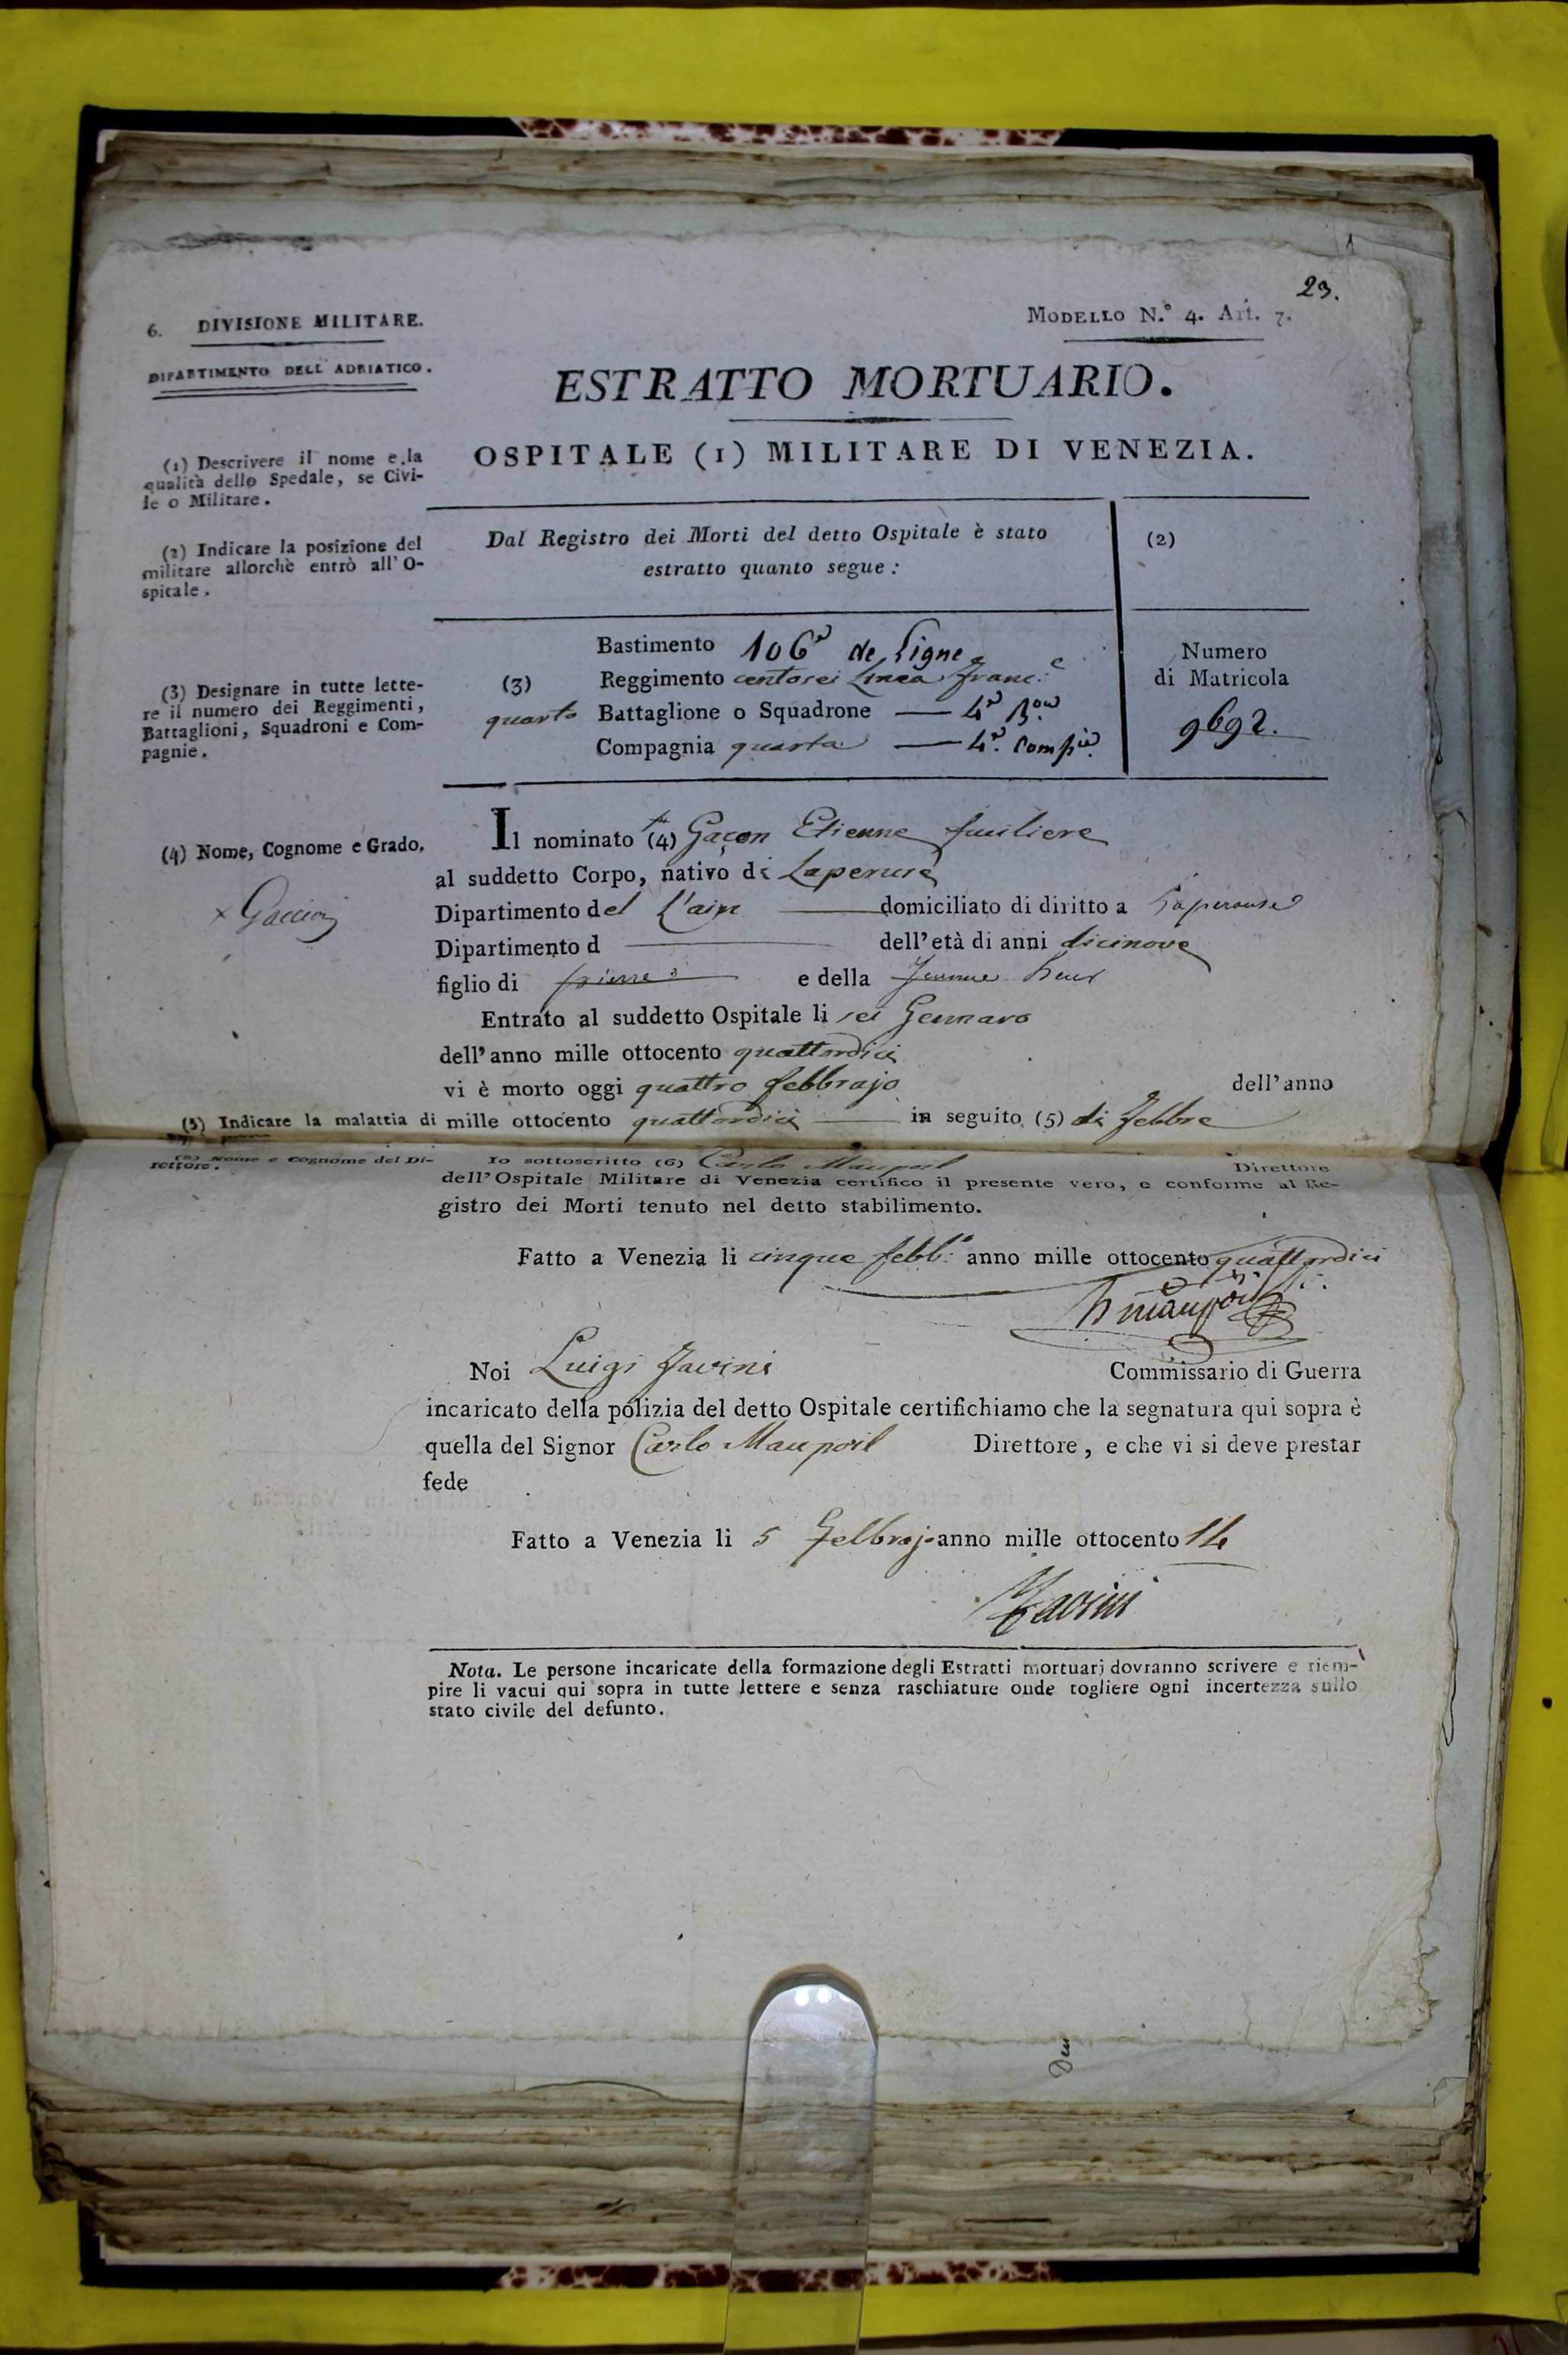 23.
6. DIVISIONE MILITARE.
MODELLO N.° 4. Art. 7.
DIPARTIMENTO DELL' ADRIATICO.
ESTRATTO MORTUARIO.
OSPITALE (1) MILITARE DI VENEZIA.
(1) Descrivere il nome e la
qualità dello Spedale, se Civi-
le o Militare.
(2) Indicare la posizione del
militare allorchè entrò all' O-
spitale.
Dal Registro dei Morti del detto Ospitale è stato
estratto quanto segue:
(2)
(3) Designare in tutte lette-
re il numero dei Reggimenti,
Battaglioni, Squadroni e Com-
pagnie.
Bastimento 106e de Ligne
(3) Reggimento centosei Linea franc.e
quarto Battaglione o Squadrone — 4e B.on
Compagnia quarta — 4e. Comp.ie
Numero
di Matricola
9692.
(4) Nome, Cognome e Grado.
Il nominato (4) Gaçon Etienne fuciliere
al suddetto Corpo, nativo di Laperuse
Dipartimento del L'ain domiciliato di diritto a Laperouse
Dipartimento d dell'età di anni dicinove
figlio di pierre e della Jeanne
Entrato al suddetto Ospitale li sei Gennaro
dell'anno mille ottocento quattordici
vi è morto oggi quattro febbrajo dell'anno
(5) Indicare la malattia di mille ottocento quattordici in seguito (5) di febbre
(6) Nome e Cognome del Di-
rettore.
Io sottoscritto (6) Carlo Maupoil Direttore
dell'Ospitale Militare di Venezia certifico il presente vero, e conforme al Re-
gistro dei Morti tenuto nel detto stabilimento.
Fatto a Venezia li cinque febb.o anno mille ottocento quattordici
Maupoil
Noi Luigi Favini Commissario di Guerra
incaricato della polizia del detto Ospitale certifichiamo che la segnatura qui sopra è
quella del Signor Carlo Maupoil Direttore, e che vi si deve prestar
fede
Fatto a Venezia li 5 Febbrajo anno mille ottocento 14
Favini
Nota. Le persone incaricate della formazione degli Estratti mortuarj dovranno scrivere e riem-
pire li vacui qui sopra in tutte lettere e senza raschiature onde togliere ogni incertezza sullo
stato civile del defunto.